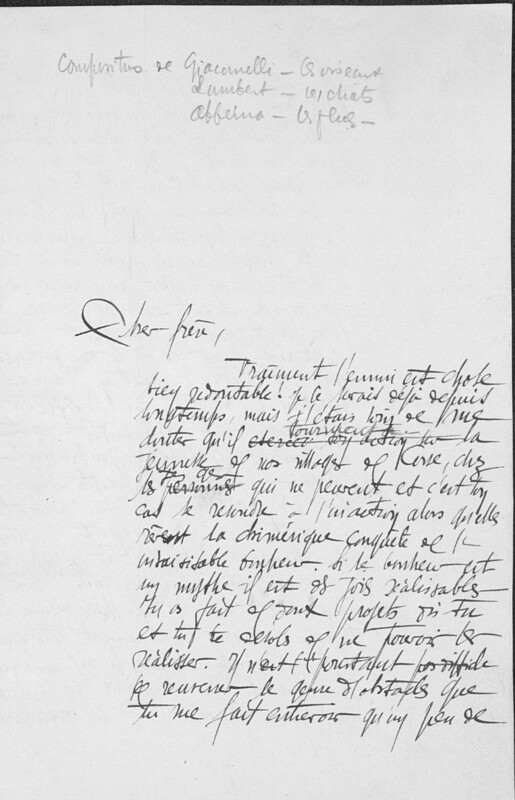 Compositions de Giacomelli – les oiseaux
Lambert – les chats
– les
Cher frère,
Vraiment l'ennui est chose
bien redoutable ! je le savais déjà depuis
longtemps, mais j'étais loin de me
douter qu'il exercé tourmente son action sur la
jeunesse de nos villages de Corse, chez
les personnes qui ne peuvent et c'est ton
cas se résoudre à l'inaction alors qu'elles
rêvent la chimérique conquête de l'
insaisissable bonheur. Si le bonheur est
un mythe il est des joies réalisables
tu as fait de doux projets dis tu
et tu te désoles de ne pouvoir les
réaliser. Il n'est pourtant pas difficile
de renverser le genre d'obstacles que
tu me fait entrevoir qu'un peu de